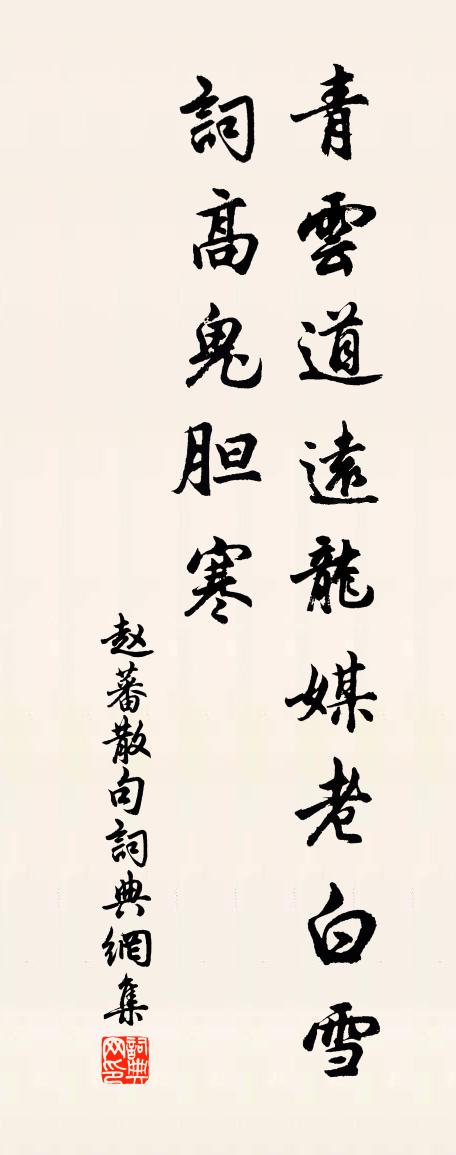 青雲道遠龍媒老白雪
詞高鬼胆寒
赵蕃散句詞典網集
詞典网印